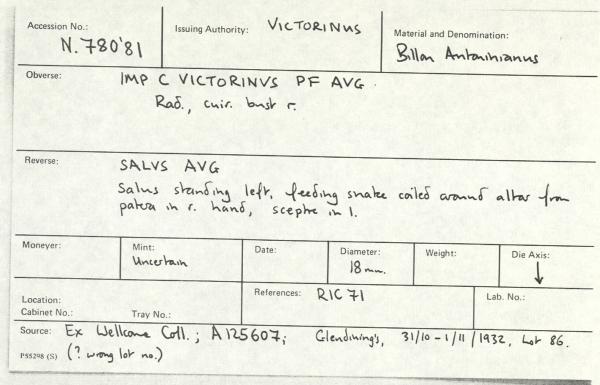 Accession No.: N.780'81
Issuing Authority: VICTORINUS
Material and Denomination: Billon Antoninianus
Obverse: IMP C VICTORINVS PF AVG.
Rad., cuir. bust r.
Reverse: SALVS AVG
Salus standing left, feeding snake coiled around altar from
patera in r. hand, sceptre in l.
Moneyer:
Mint: Uncertain
Date:
Diameter: 18 mm.
Weight:
Die Axis: ↓
Location:
Cabinet No.: Tray No.:
References: RIC 71
Lab. No.:
Source: Ex Wellcome Coll.; A125607; Glendining's, 31/10 - 1/11/1932, Lot 86.
P55298 (S) (? wrong lot no.)